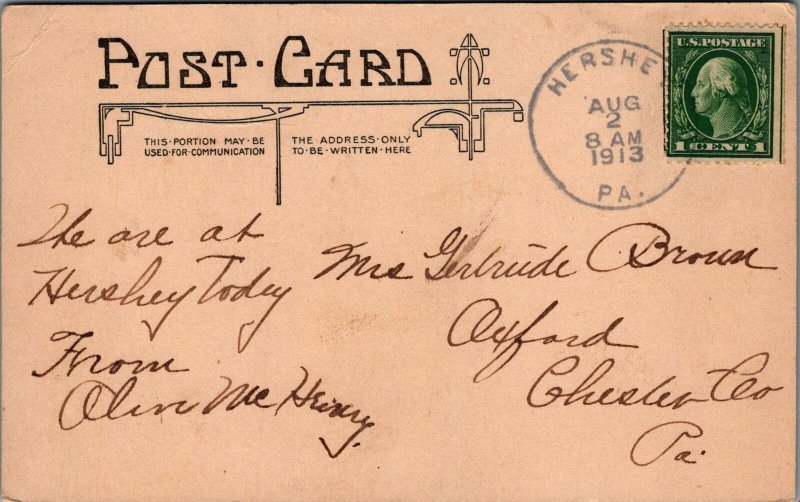 POST·CARD
THIS·PORTION MAY·BE
USED·FOR·COMMUNICATION
THE ADDRESS·ONLY
TO·BE·WRITTEN·HERE
HERSHE
AUG
2
8 AM
1913
PA.
U.S.POSTAGE
1 CENT 1
We are at
Hershey Today
From
Olive McHenry.
Mrs Gertrude Brown
Oxford
Chester Co
Pa.